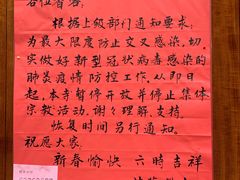 各位香客:
根据上级部门通知要求,
为最大限度防止交叉感染,切
实做好新型冠状病毒感染的
肺炎疫情防控工作,从即日
起,本寺暂停开放并停止集体
宗教活动。谢谢理解、支持。
恢复时间另行通知。
祝愿大家:
新春愉快 六时吉祥